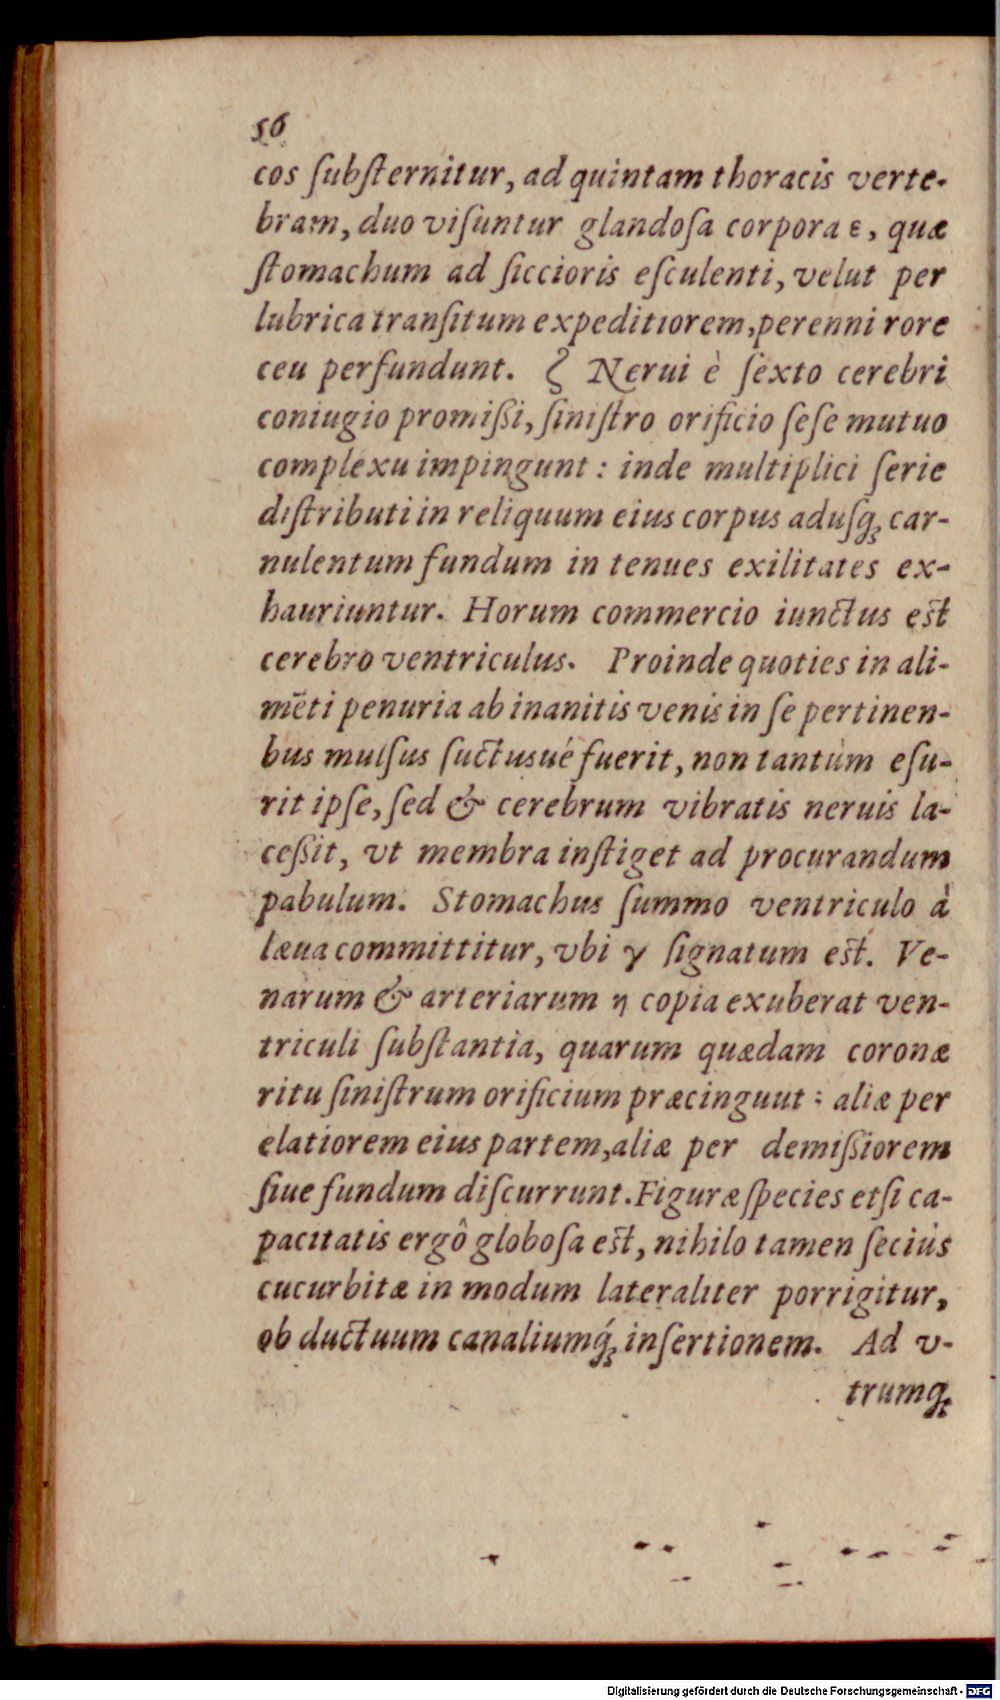 56
cos ſubſternitur, ad quintam thoracis verte-
bram, duo viſuntur glandoſa corpora ε, quæ
ſtomachum ad ſiccioris eſculenti, velut per
lubrica tranſitum expeditiorem, perenni rore
ceu perfundunt. ζ Nerui è ſexto cerebri
coniugio promißi, ſiniſtro orificio ſeſe mutuo
complexu impingunt: inde multiplici ſerie
diſtributi in reliquum eius corpus aduſq́; car-
nulentum fundum in tenues exilitates ex-
hauriuntur. Horum commercio iunctus eſt
cerebro ventriculus. Proinde quoties in ali-
mēti penuria ab inanitis venis in ſe pertinen-
bus mulſus ſuctusué fuerit, non tantùm eſu-
rit ipſe, ſed & cerebrum vibratis neruis la-
ceßit, vt membra inſtiget ad procurandum
pabulum. Stomachus ſummo ventriculo à
læua committitur, vbi γ ſignatum eſt. Ve-
narum & arteriarum η copia exuberat ven-
triculi ſubſtantia, quarum quædam coronæ
ritu ſiniſtrum orificium præcinguut: aliæ per
elatiorem eius partem, aliæ per demißiorem
ſiue fundum diſcurrunt. Figuræ ſpecies etſi ca-
pacitatis ergô globoſa eſt, nihilo tamen ſeciùs
cucurbitæ in modum lateraliter porrigitur,
ob ductuum canaliumq́; inſertionem. Ad v-
trumq;
Digitalisierung gefördert durch die Deutsche Forschungsgemeinschaft - DFG